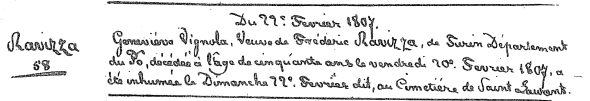 Du 22.e Fevrier 1807.
Ravizza
58
Geneviève Vignola, Veuve de Frédéric Ravizza, de Turin Département
du Pô, décédée à l'âge de cinquante ans le vendredi 20.e Fevrier 1807, a
été inhumée le Dimanche 22.e Fevrier dit, au Cimetière de Saint Laurent.